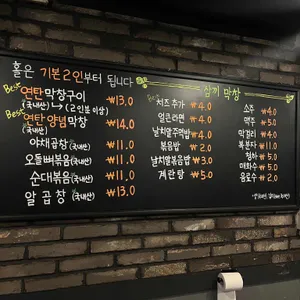 홀은 기본2인부터 됩니다
삼끼 막창
Best 연탄막창구이 ₩13.0
(국내산) → (2인분 이상)
Best 연탄양념막창 ₩14.0
(국내산)
야채곱창(국내산) ₩11.0
오돌뼈볶음(국내산) ₩11.0
순대볶음(국내산) ₩11.0
알곱창(국내산) ₩13.0
치즈추가 ₩4.0
얼큰라면 ₩4.0
날치알주먹밥 ₩4.0
볶음밥 ₩2.0
날치알볶음밥 ₩3.0
계란탕 ₩5.0
소주 ₩4.0
맥주 ₩5.0
막걸리 ₩4.0
복분자 ₩11.0
청하 ₩5.0
매화수 ₩5.0
음료수 ₩2.0